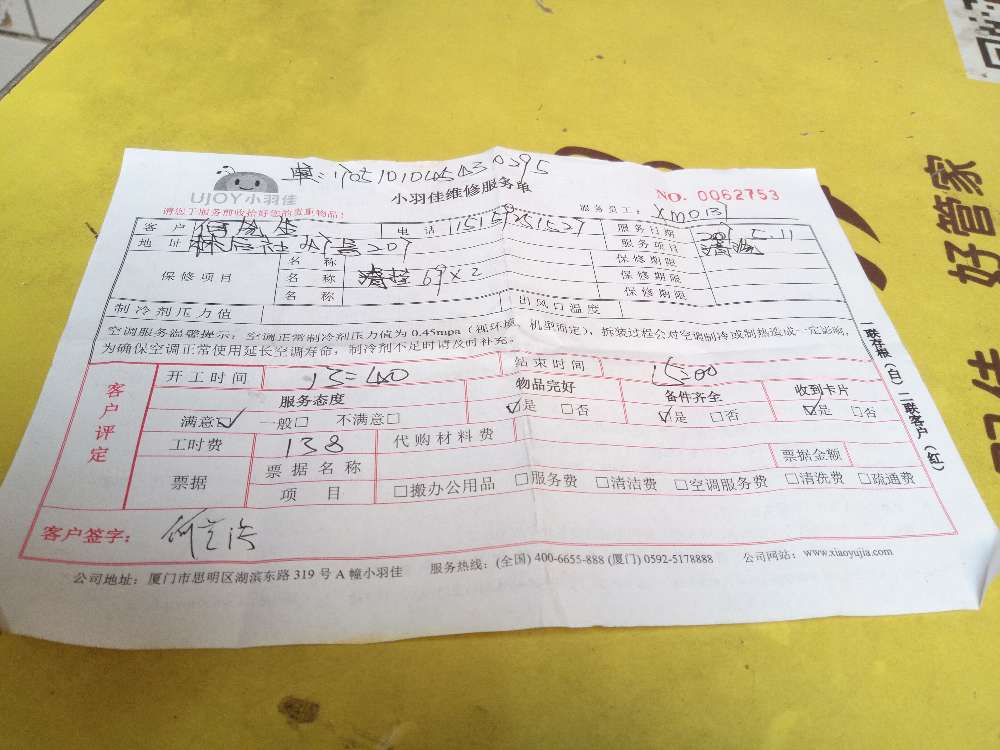 UJOY小羽佳
小羽佳维修服务单
NO. 0062753
请您于服务前收拾好您的贵重物品!
服务员工: Xm0131
客户 电话
服务日期 5.11
地址 207
服务项目 清洗
保修项目
名称 保修期限
名称 清挂 69×2 保修期限
名称 保修期限
制冷剂压力值 出风口温度
空调服务温馨提示:空调正常制冷剂压力值为0.45mpa(视环境、机型而定),拆装过程会对空调制冷或制热造成一定影响,
为确保空调正常使用延长空调寿命,制冷剂不足时请及时补充。
客户评定
开工时间 13=40 结束时间 1500
服务态度 物品完好 备件齐全 收到卡片
满意☑ 一般□ 不满意□ ☑是 □否 ☑是 □否 ☑是 □否
工时费 138 代购材料费
票据 票据名称 票据金额
项目 □搬办公用品 □服务费 □清洁费 □空调服务费 □清洗费 □疏通费
客户签字:
公司地址:厦门市思明区湖滨东路319号A幢小羽佳 服务热线:(全国) 400-6655-888 (厦门) 0592-5178888 公司网站:www.xiaoyujia.com
一联存根(白)二联客户(红)
好管家